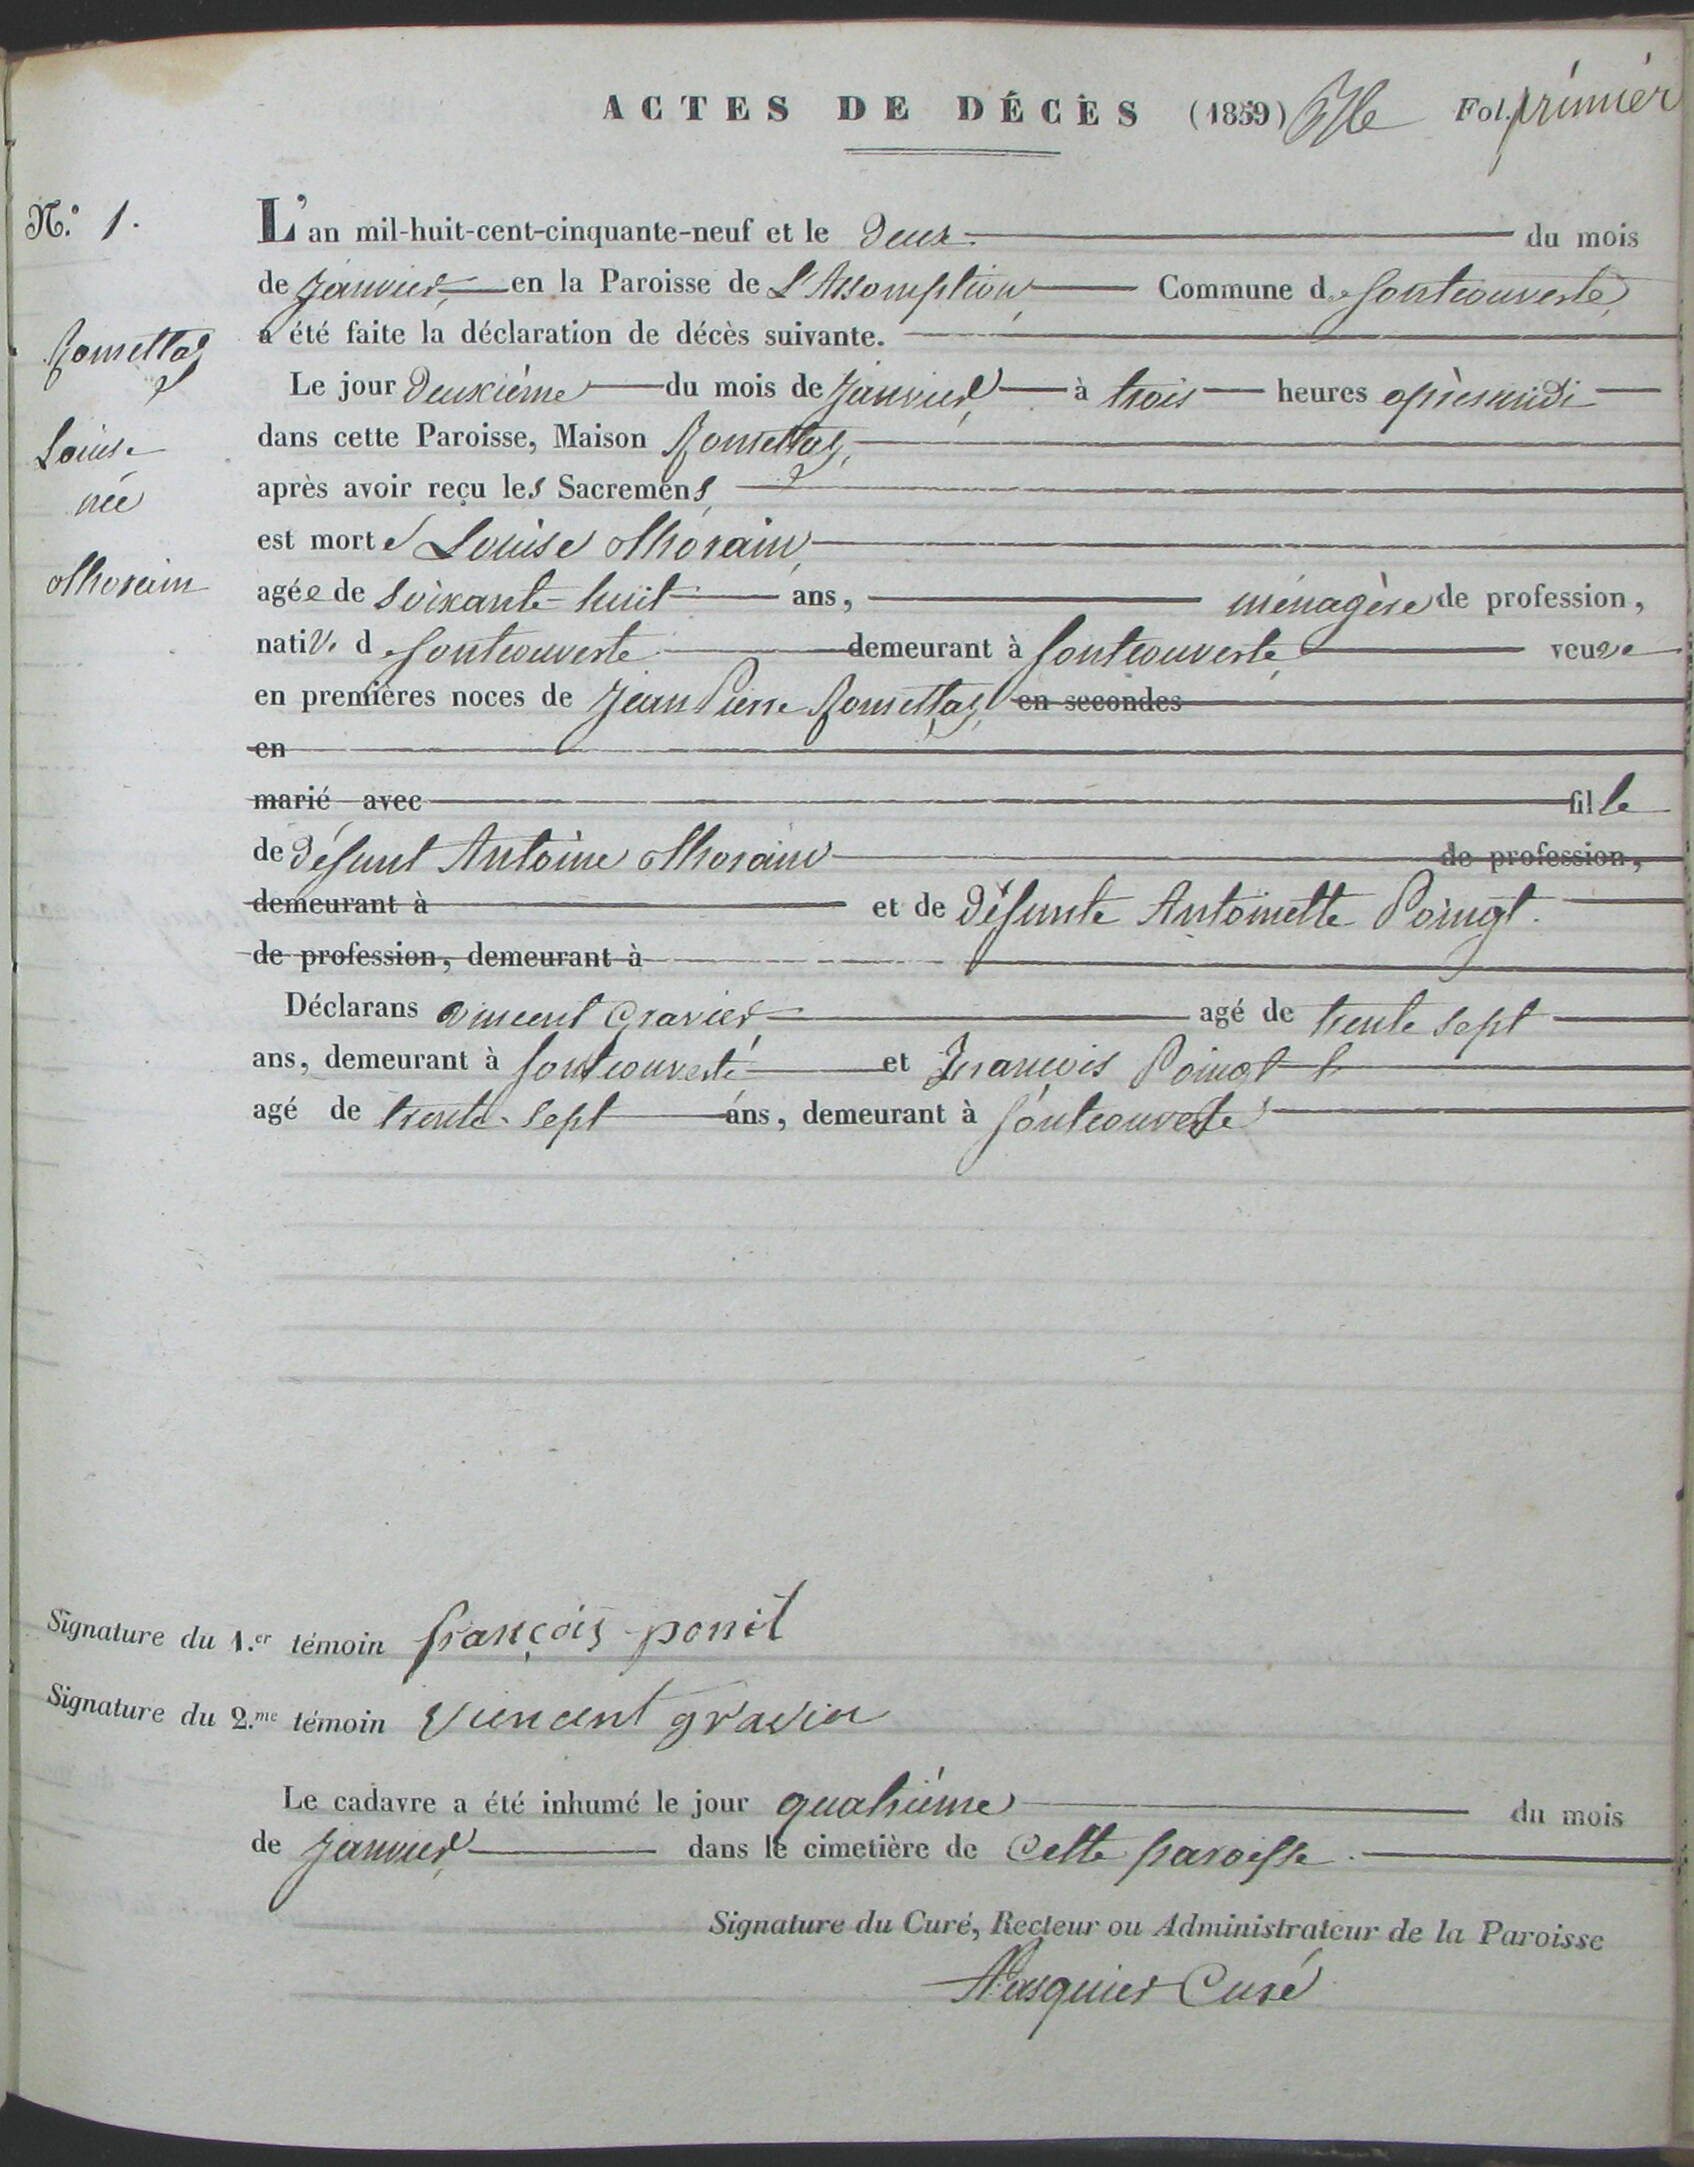 ACTES DE DÉCÈS (1859) Fol. primier
N.º 1.
L'an mil-huit-cent-cinquante-neuf et le Deux du mois
de Janvier, en la Paroisse de L'Assomption, Commune de fontcouverte,
a été faite la déclaration de décès suivante.
Romettaz
Louise
née
Thorain
Le jour Deuxième du mois de Janvier à trois heures après midi
dans cette Paroisse, Maison Romettaz,
après avoir reçu les Sacremens
est morte Louise Thorain,
agée de Soixante-huit ans, ménagère de profession,
native de fontcouverte demeurant à fontcouverte, veuve
en premières noces de Jean Pierre Romettaz, en secondes
en
marié avec fille
de défunt Antoine Thorain de profession,
demeurant à et de défunte Antoinette Poingt.
de profession, demeurant à
Déclarans vincent Gravier agé de trente sept
ans, demeurant à fontcouverte et François Poingt
agé de trente-sept ans, demeurant à fontcouverte
Signature du 1.er témoin françois
Signature du 2.me témoin Vincent gravier
Le cadavre a été inhumé le jour quatrième du mois
de Janvier dans le cimetière de cette paroisse.
Signature du Curé, Recteur ou Administrateur de la Paroisse
Pasquier Curé